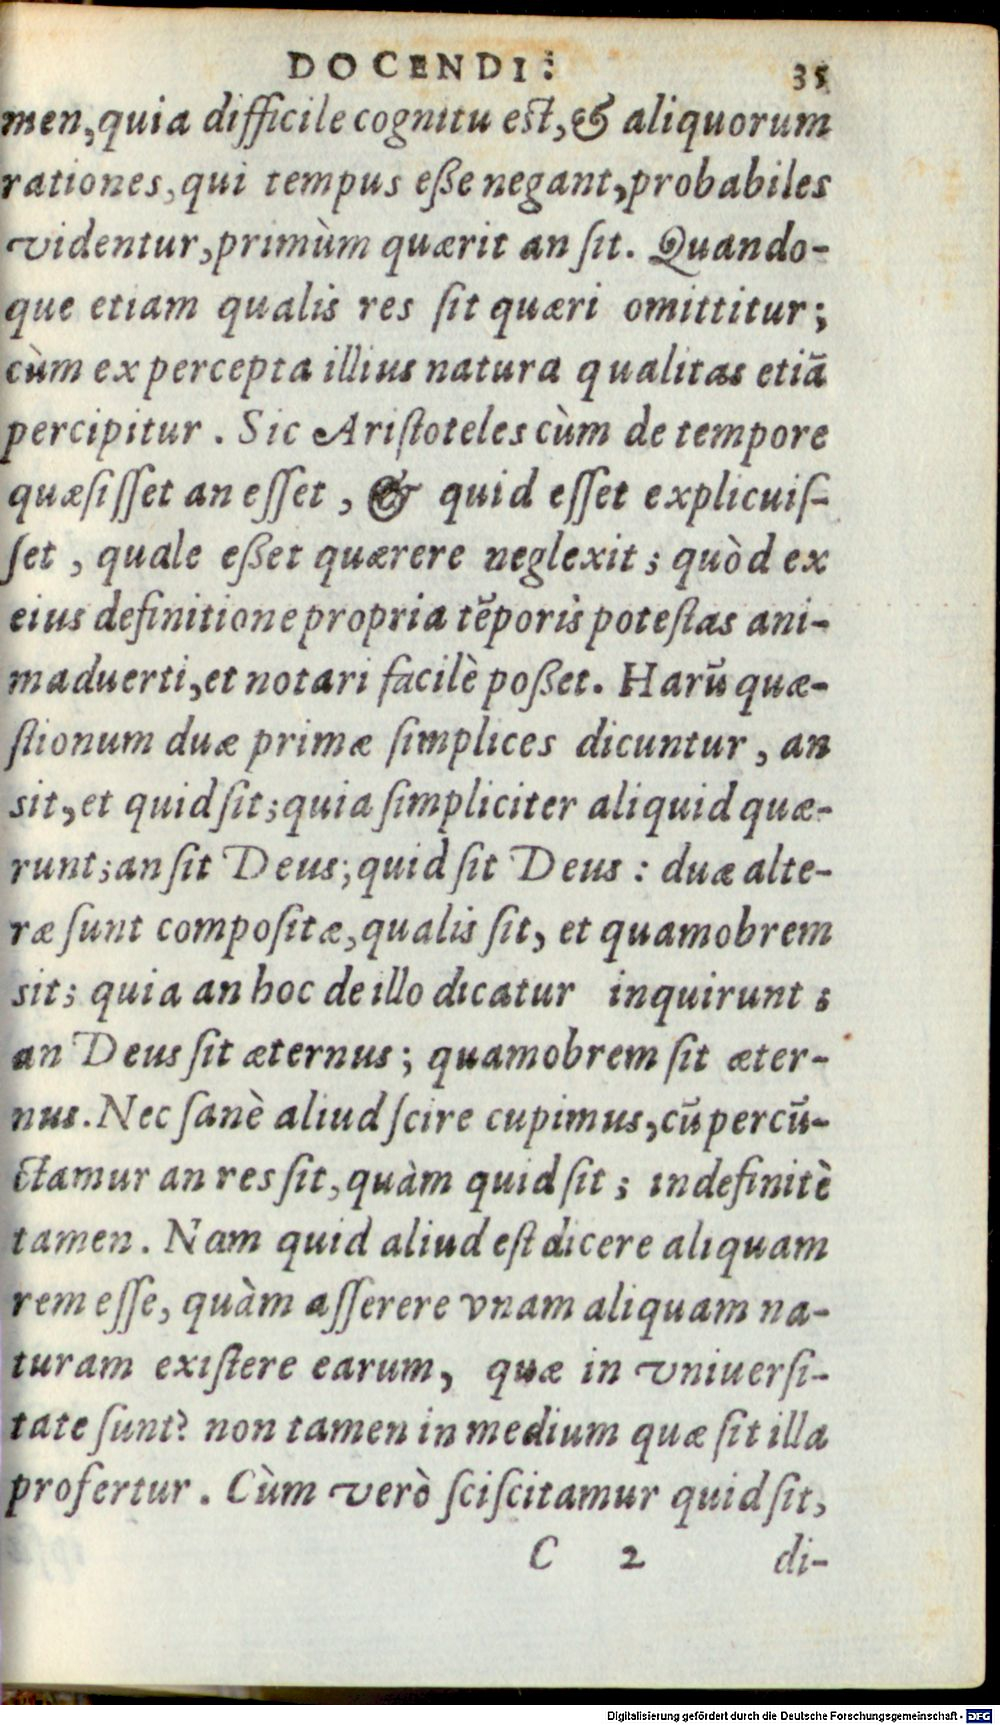 DOCENDI: 35
men, quia difficile cognitu est, & aliquorum
rationes, qui tempus eße negant, probabiles
videntur, primùm quærit an ſit. Quando-
que etiam qualis res ſit quæri omittitur;
cùm ex percepta illius natura qualitas etiã
percipitur. Sic Ariſtoteles cùm de tempore
quæſiſſet an eſſet, & quid eſſet explicuiſ-
ſet, quale eßet quærere neglexit; quòd ex
eius definitione propria tẽporis poteſtas ani-
maduerti, et notari facilè poßet. Harũ quæ-
ſtionum duæ primæ ſimplices dicuntur, an
sit, et quid ſit; quia ſimpliciter aliquid quæ-
runt; an ſit Deus; quid ſit Deus: duæ alte-
ræ ſunt compoſitæ, qualis ſit, et quamobrem
sit; quia an hoc de illo dicatur inquirunt;
an Deus ſit æternus; quamobrem ſit æter-
nus. Nec ſanè aliud ſcire cupimus, cũ percũ-
ctamur an res ſit, quàm quid ſit; indefinitè
tamen. Nam quid aliud eſt dicere aliquam
rem eſſe, quàm aſſerere vnam aliquam na-
turam exiſtere earum, quæ in vniuerſi-
tate ſunt? non tamen in medium quæ ſit illa
profertur. Cùm verò ſciſcitamur quid ſit,
C 2 di-
Digitalisierung gefördert durch die Deutsche Forschungsgemeinschaft - DFG